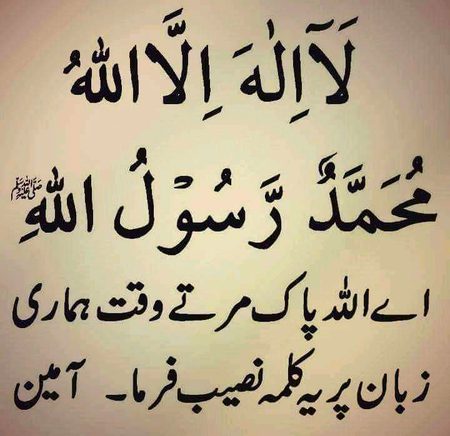 لَآ اِلٰهَ اِلَّا اللّٰهُ
مُحَمَّدٌ رَّسُوْلُ اللّٰهِ ﷺ
اے اللہ پاک مرتے وقت ہماری
زبان پر یہ کلمہ نصیب فرما۔ آمین